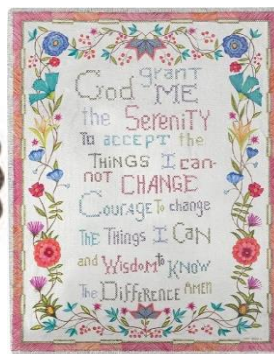 God grant
ME
the SERENITY
To ACCEPT the
THINGS I can-
not CHANGE
Courage To change
THE Things I CAN
and WISDOM to KNOW
The DIFFERENCE AMEN